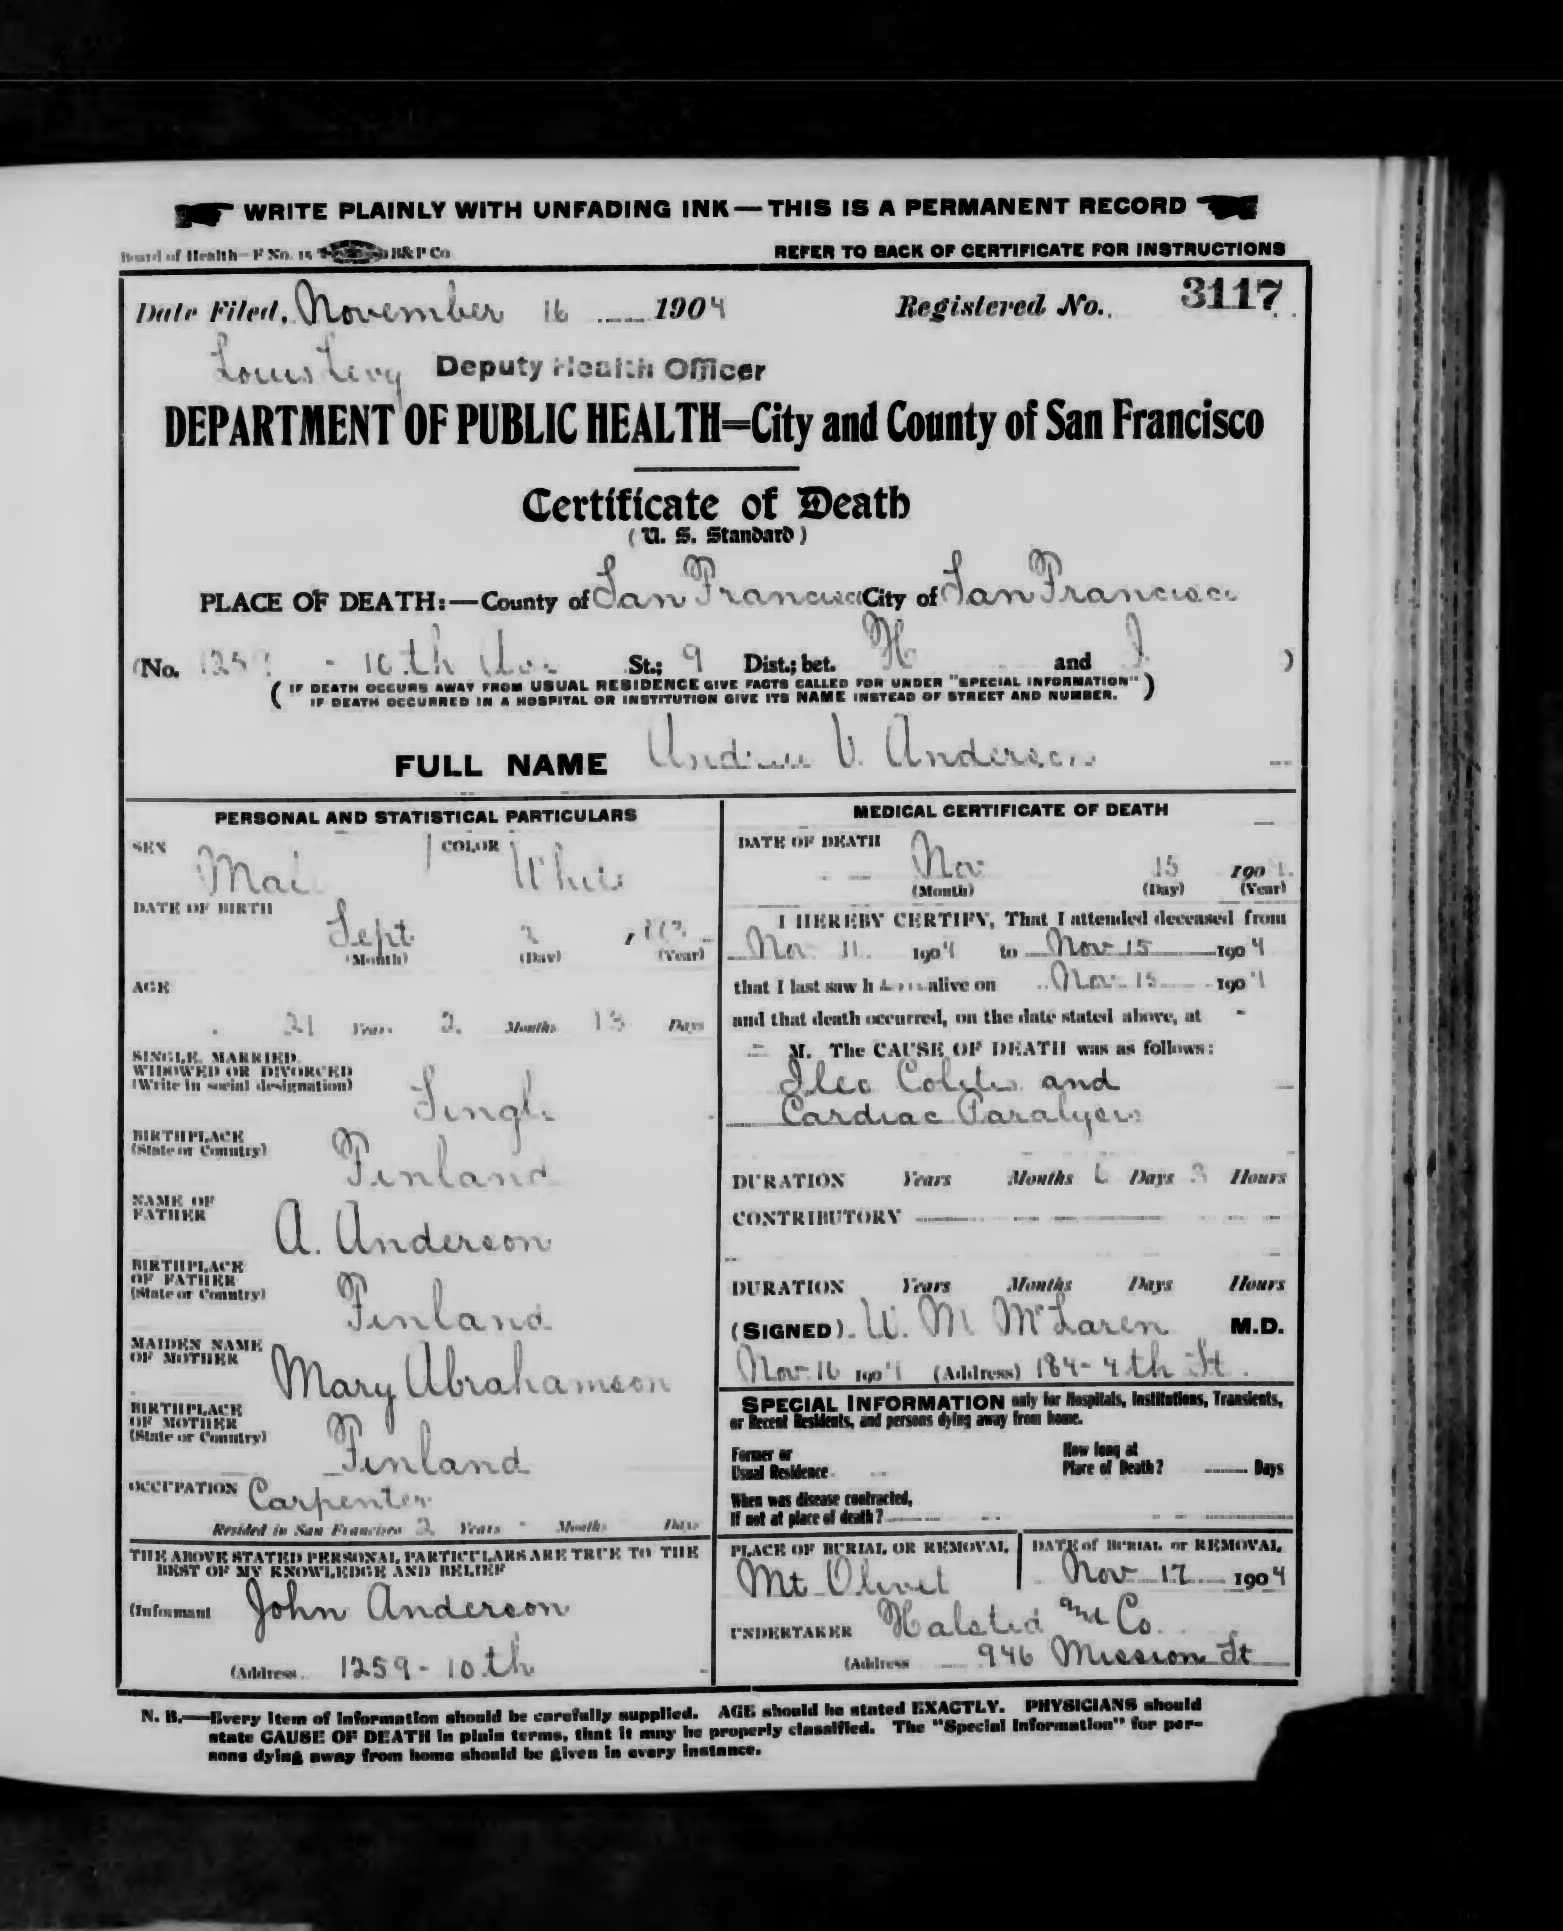 WRITE PLAINLY WITH UNFADING INK—THIS IS A PERMANENT RECORD
Board of Health—F No. 15 B&P Co
REFER TO BACK OF CERTIFICATE FOR INSTRUCTIONS
Date Filed, November 16 1904 Registered No. 3117
Louis Levy Deputy Health Officer
DEPARTMENT OF PUBLIC HEALTH=City and County of San Francisco
Certificate of Death
(U. S. Standard)
PLACE OF DEATH:—County of San Francisco City of San Francisco
(No. 1259 - 10th Ave St.; 9 Dist.; bet. H and I )
( IF DEATH OCCURS AWAY FROM USUAL RESIDENCE GIVE FACTS CALLED FOR UNDER "SPECIAL INFORMATION" )
IF DEATH OCCURRED IN A HOSPITAL OR INSTITUTION GIVE ITS NAME INSTEAD OF STREET AND NUMBER.
FULL NAME Andrew V. Anderson
PERSONAL AND STATISTICAL PARTICULARS
SEX Male COLOR White
DATE OF BIRTH
Sept 2
(Month) (Day) (Year)
AGE
21 Years 2 Months 13 Days
SINGLE, MARRIED,
WIDOWED OR DIVORCED
(Write in social designation)
Single
BIRTHPLACE
(State or Country)
Finland
NAME OF
FATHER
A. Anderson
BIRTHPLACE
OF FATHER
(State or Country)
Finland
MAIDEN NAME
OF MOTHER
Mary Abrahamson
BIRTHPLACE
OF MOTHER
(State or Country)
Finland
OCCUPATION Carpenter
Resided in San Francisco 2 Years - Months Days
THE ABOVE STATED PERSONAL PARTICULARS ARE TRUE TO THE
BEST OF MY KNOWLEDGE AND BELIEF
(Informant John Anderson
(Address 1259 - 10th
MEDICAL CERTIFICATE OF DEATH
DATE OF DEATH
Nov 15 1904
(Month) (Day) (Year)
I HEREBY CERTIFY, That I attended deceased from
Nov 11 1904 to Nov 15 1904
that I last saw h alive on Nov 15 1904
and that death occurred, on the date stated above, at -
M. The CAUSE OF DEATH was as follows:
Ileo Colitis and
Cardiac Paralysis
DURATION Years Months 6 Days 3 Hours
CONTRIBUTORY
DURATION Years Months Days Hours
(SIGNED) W. M McLaren M.D.
Nov 16 1904 (Address) 184 - 4th St.
SPECIAL INFORMATION only for Hospitals, Institutions, Transients,
or Recent Residents, and persons dying away from home.
Former or
Usual Residence
How long at
Place of Death? Days
When was disease contracted,
If not at place of death?
PLACE OF BURIAL OR REMOVAL
Mt Olivet
DATE of BURIAL or REMOVAL
Nov 17 1904
UNDERTAKER Halsted and Co.
(Address 946 Mission St
N. B.—Every item of information should be carefully supplied. AGE should be stated EXACTLY. PHYSICIANS should
state CAUSE OF DEATH in plain terms, that it may be properly classified. The "Special Information" for per-
sons dying away from home should be given in every instance.